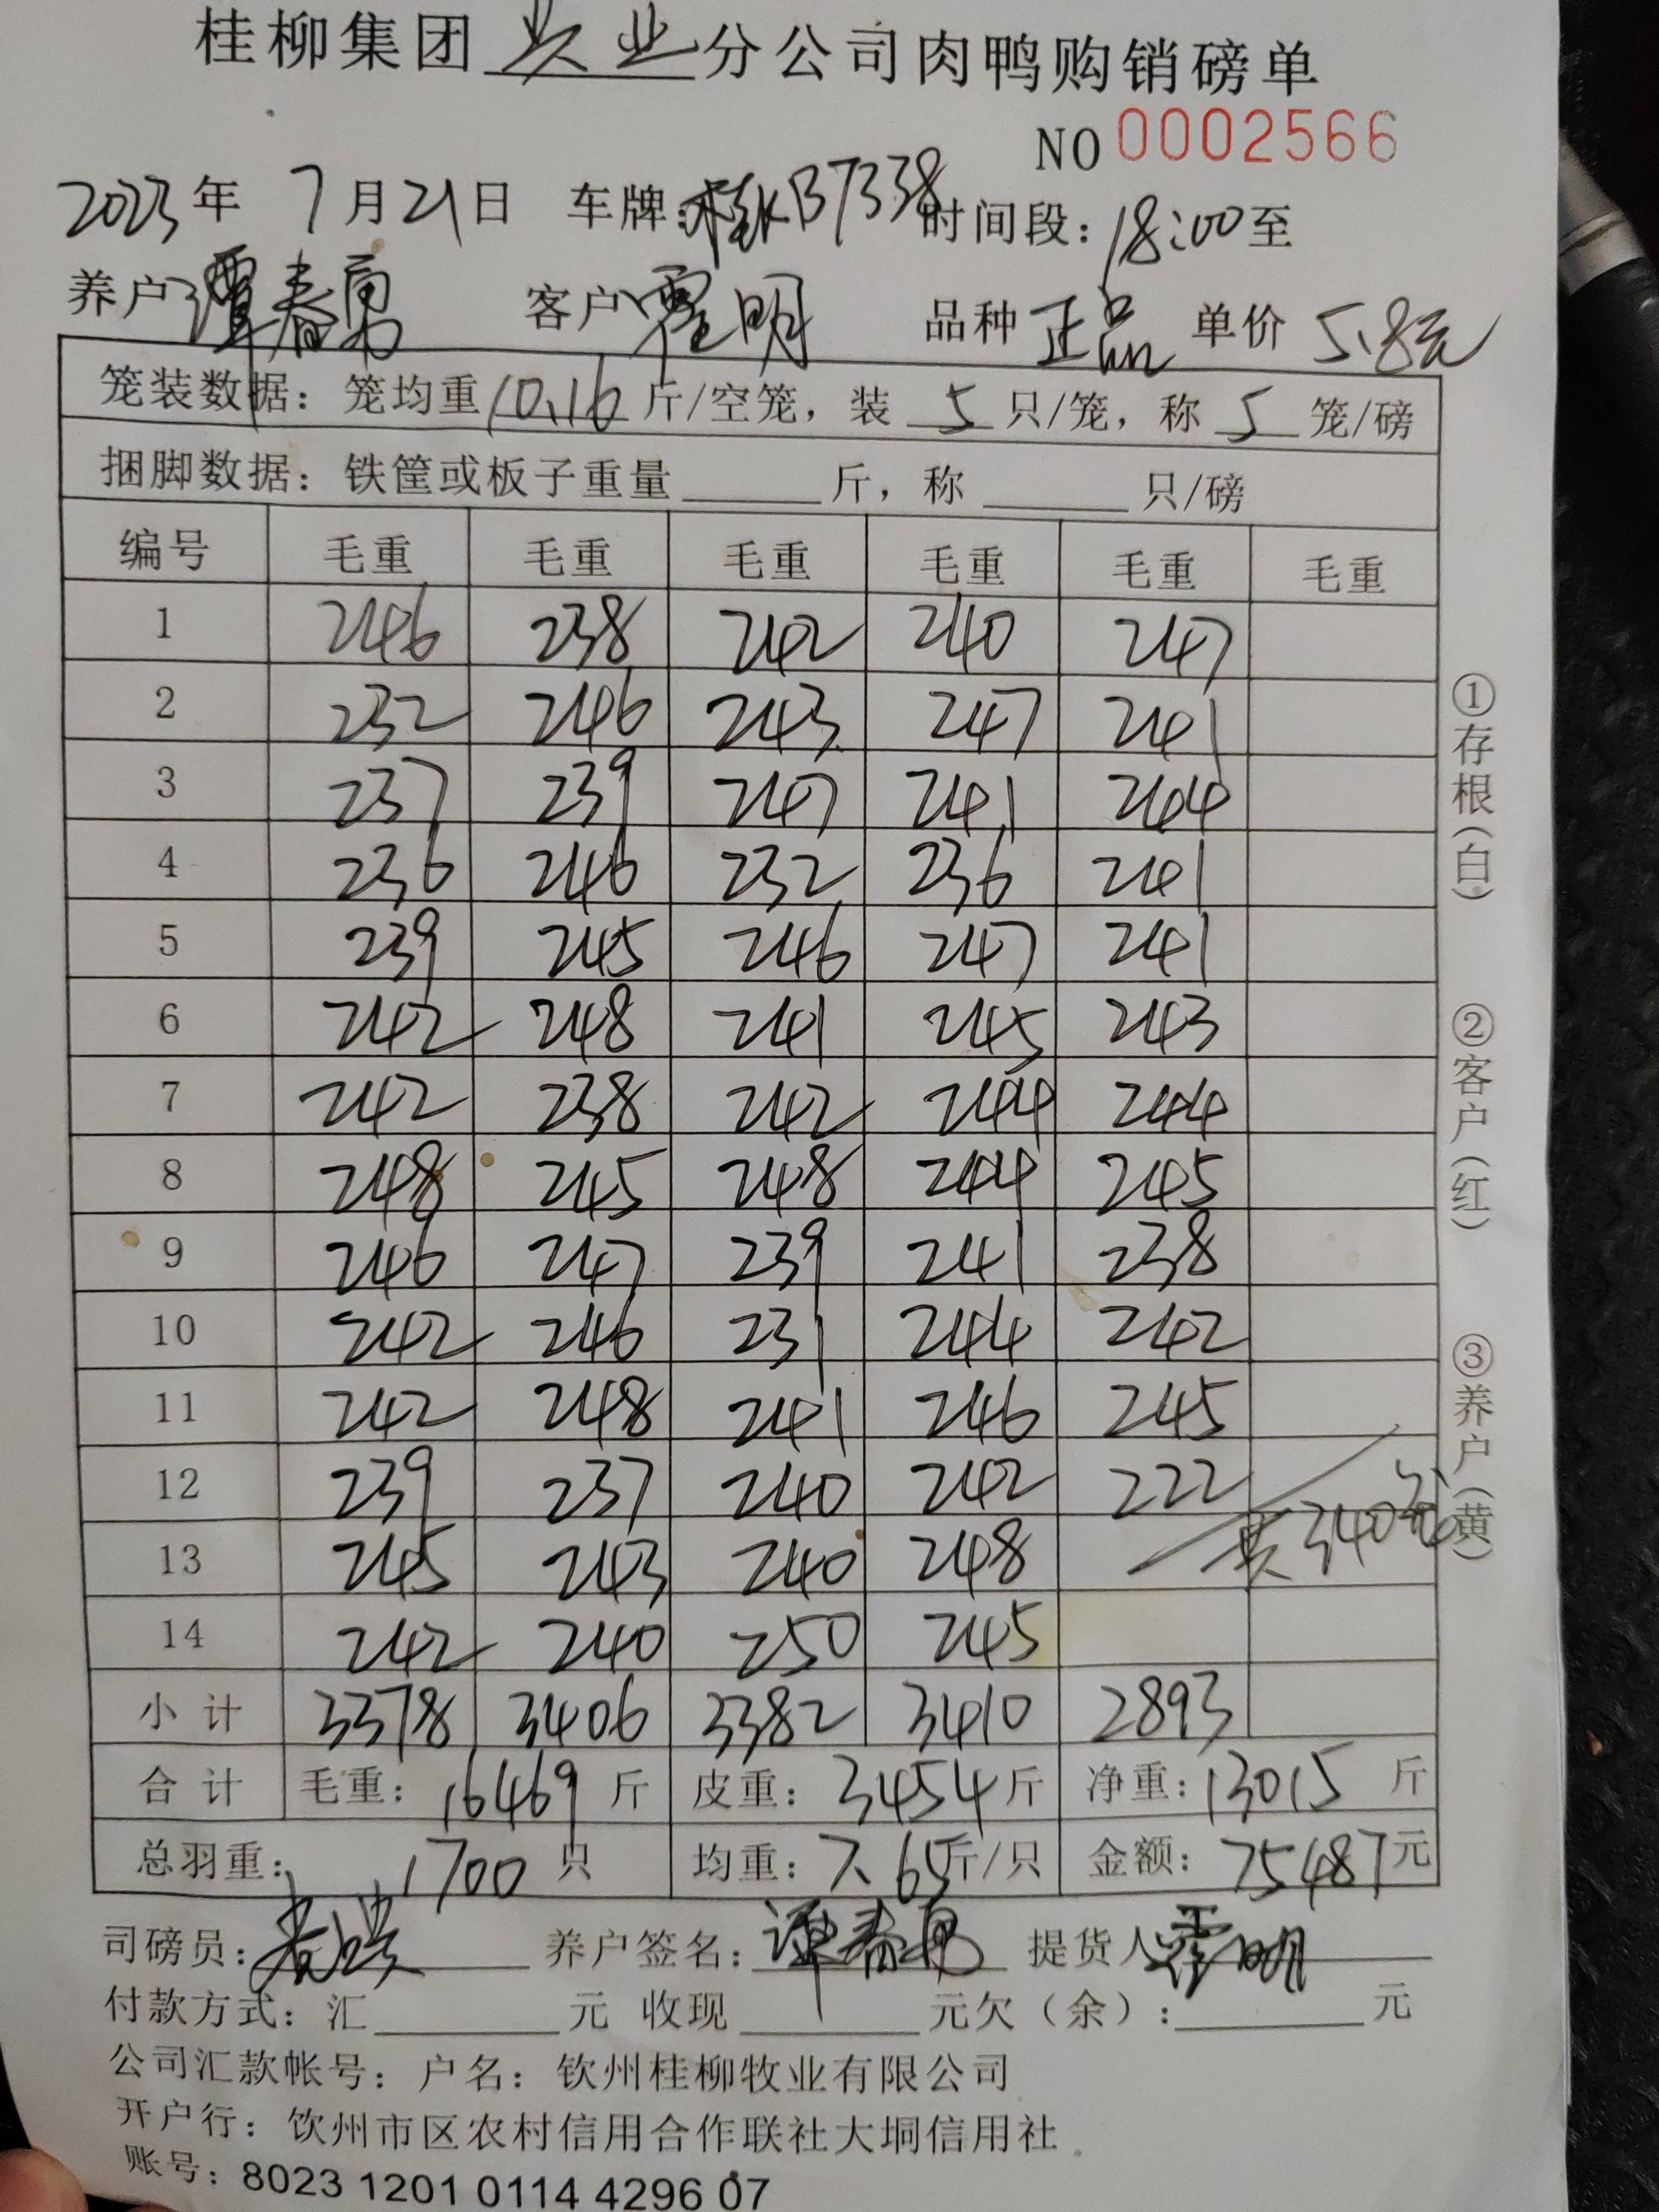 桂柳集团 兴业 分公司肉鸭购销磅单
NO 0002566
2023年 7月21日 车牌:桂KB7338 时间段:18:00至
养户 谭春勇 客户 霍明 品种 正品 单价 5.8元
笼装数据:笼均重10.16斤/空笼,装 5 只/笼,称 5 笼/磅
捆脚数据:铁筐或板子重量______斤,称______只/磅
编号 毛重 毛重 毛重 毛重 毛重 毛重
1 246 238 242 240 247
2 232 246 243 247 241
3 237 239 247 241 244
4 236 246 232 236 241
5 239 245 246 247 241
6 242 248 241 245 243
7 242 238 242 244 244
8 248 245 248 244 245
9 246 247 239 241 238
10 242 246 231 244 242
11 242 248 241 246 245
12 239 237 240 242 222
13 245 243 240 248 共340笼
14 242 240 250 245
小计 3378 3406 3382 3410 2893
合计 毛重:16469斤 皮重:3454斤 净重:13015斤
总羽重:1700只 均重:7.65斤/只 金额:75487元
司磅员: 养户签名:谭春勇 提货人 霍明
付款方式:汇______元 收现______元欠(余):______元
公司汇款帐号:户名:钦州桂柳牧业有限公司
开户行:钦州市区农村信用合作联社大垌信用社
账号:8023 1201 0114 4296 07
①存根(白) ②客户(红) ③养户(黄)